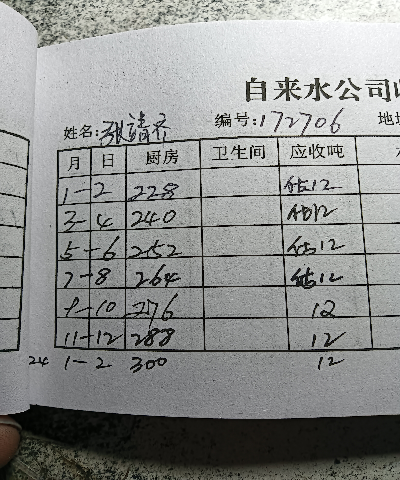 自来水公司
姓名:张靖齐 编号:172706 地
月 日 厨房 卫生间 应收吨
1-2 228 估12
3-4 240 估12
5-6 252 估12
7-8 264 估12
9-10 276 12
11-12 288 12
24 1-2 300 12